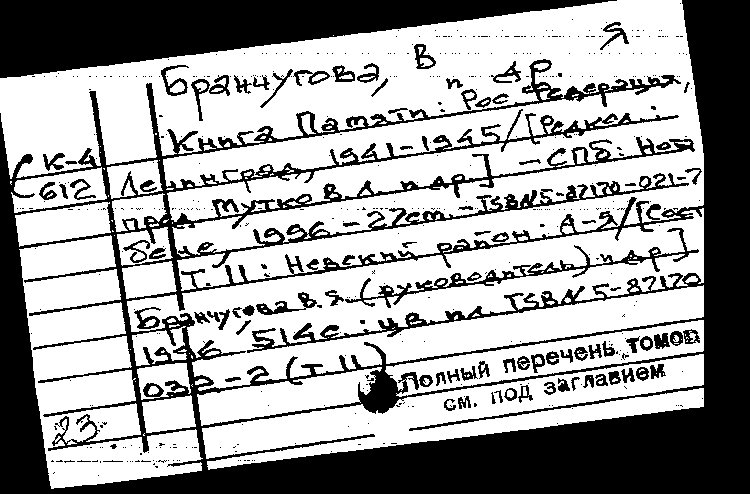 Бранчугова, В Я
и др.
Книга Памяти: Рос. Федерация,
К-4 Ленинград, 1941-1945/[Редкол.:
612 пред. Мутко В.Л. и др.] -СПб: Нот
бене, 1996.-27cm.-ISBN5-87170-021-7
Т. 11: Невский район: А-Я/[Сост
Бранчугова В.Я. (руководитель) и др]
1996 514с.: цв. ил. ISBN 5-87170
032-2 (Т 11)
Полный перечень томов
см. под заглавием
23.